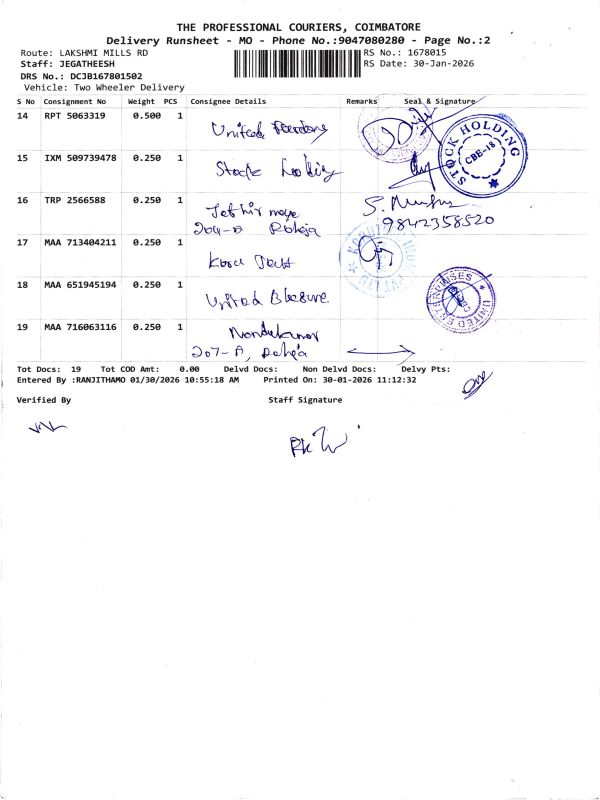 THE PROFESSIONAL COURIERS, COIMBATORE
Delivery Runsheet - MO - Phone No.:9047080280 - Page No.:2
Route: LAKSHMI MILLS RD
RS No.: 1678015
Staff: JEGATHEESH
RS Date: 30-Jan-2026
DRS No.: DCJB167801502
Vehicle: Two Wheeler Delivery
S No Consignment No Weight PCS Consignee Details Remarks Seal & Signature
14 RPT 5063319 0.500 1 United
15 IXM 509739478 0.250 1 Stock Holding
STOCK HOLDING
CBE-18
16 TRP 2566588 0.250 1
204-A Raheja
9842358520
17 MAA 713404211 0.250 1
18 MAA 651945194 0.250 1
UNITED ENTERPRISES
19 MAA 716063116 0.250 1 Nandakumar
207-A, Raheja
Tot Docs: 19 Tot COD Amt: 0.00 Delvd Docs: Non Delvd Docs: Delvy Pts:
Entered By :RANJITHAMO 01/30/2026 10:55:18 AM Printed On: 30-01-2026 11:12:32
Verified By Staff Signature